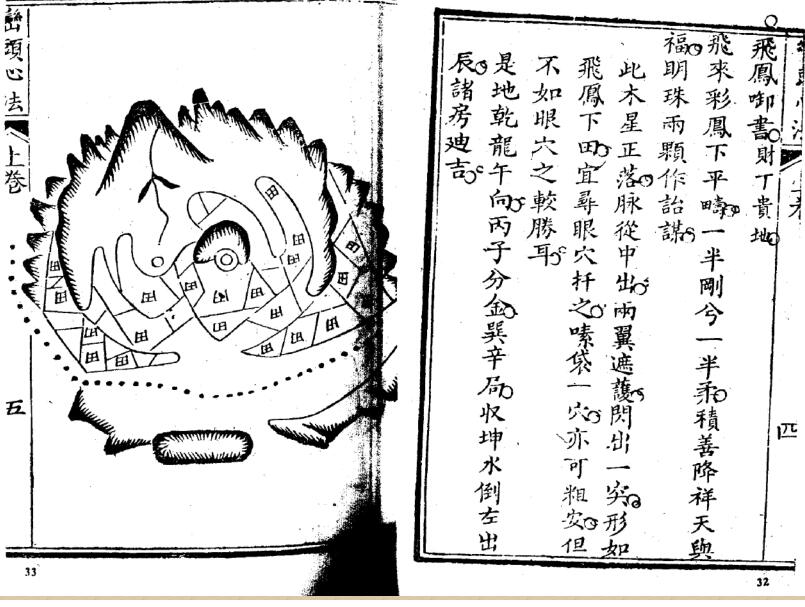 飛鳳啣書財丁貴地
飛來彩鳳下平疇一半剛兮一半柔積善降祥天與
福明珠兩顆作詒謀
此木星正落脉從中出兩翼遮護閃出一突形如
飛鳳下田宜尋眼穴扦之嗉袋一穴亦可粗安但
不如眼穴之較勝耳
是地乾龍午向丙子分金巽辛局收坤水倒左出
辰諸房廸吉
四
32
巒頭心法
上卷
五
田
田
田
田
田
田
田
田
田
田
田
田
田
田
33